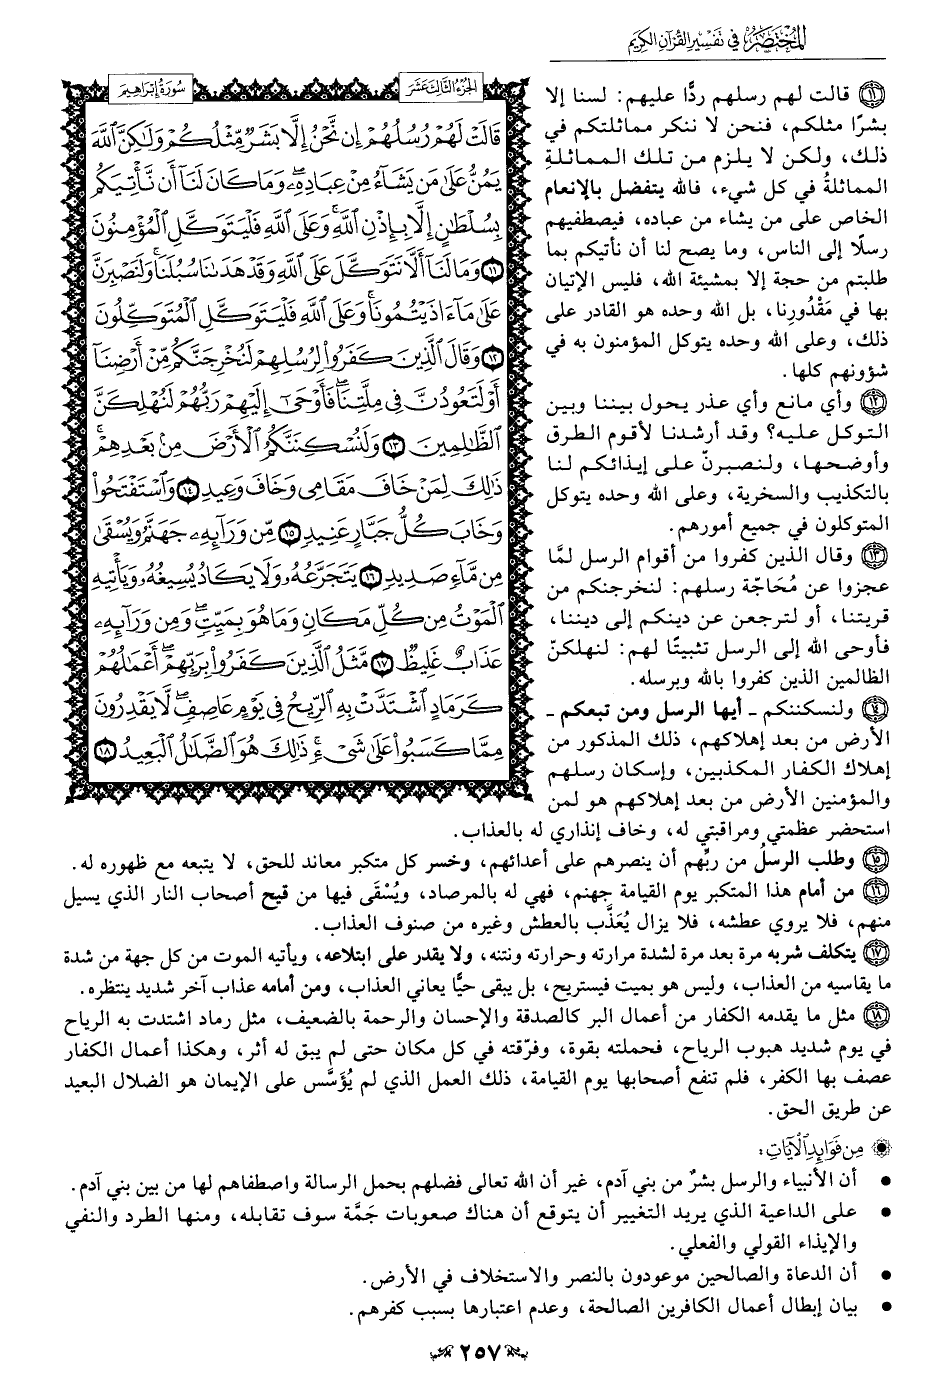 المختصر في تفسير القرآن الكريم
سورة إبراهيم
الجزء الثالث عشر
قَالَتْ لَهُمْ رُسُلُهُمْ إِن نَّحْنُ إِلَّا بَشَرٌ مِّثْلُكُمْ وَلَٰكِنَّ ٱللَّهَ
يَمُنُّ عَلَىٰ مَن يَشَآءُ مِنْ عِبَادِهِۦۖ وَمَا كَانَ لَنَآ أَن نَّأْتِيَكُم
بِسُلْطَٰنٍ إِلَّا بِإِذْنِ ٱللَّهِۚ وَعَلَى ٱللَّهِ فَلْيَتَوَكَّلِ ٱلْمُؤْمِنُونَ
١١ وَمَا لَنَآ أَلَّا نَتَوَكَّلَ عَلَى ٱللَّهِ وَقَدْ هَدَىٰنَا سُبُلَنَاۚ وَلَنَصْبِرَنَّ
عَلَىٰ مَآ ءَاذَيْتُمُونَاۚ وَعَلَى ٱللَّهِ فَلْيَتَوَكَّلِ ٱلْمُتَوَكِّلُونَ
١٢ وَقَالَ ٱلَّذِينَ كَفَرُوا۟ لِرُسُلِهِمْ لَنُخْرِجَنَّكُم مِّنْ أَرْضِنَآ
أَوْ لَتَعُودُنَّ فِى مِلَّتِنَاۖ فَأَوْحَىٰٓ إِلَيْهِمْ رَبُّهُمْ لَنُهْلِكَنَّ
ٱلظَّٰلِمِينَ ١٣ وَلَنُسْكِنَنَّكُمُ ٱلْأَرْضَ مِنۢ بَعْدِهِمْۚ
ذَٰلِكَ لِمَنْ خَافَ مَقَامِى وَخَافَ وَعِيدِ ١٤ وَٱسْتَفْتَحُوا۟
وَخَابَ كُلُّ جَبَّارٍ عَنِيدٍ ١٥ مِّن وَرَآئِهِۦ جَهَنَّمُ وَيُسْقَىٰ
مِن مَّآءٍ صَدِيدٍ ١٦ يَتَجَرَّعُهُۥ وَلَا يَكَادُ يُسِيغُهُۥ وَيَأْتِيهِ
ٱلْمَوْتُ مِن كُلِّ مَكَانٍ وَمَا هُوَ بِمَيِّتٍۖ وَمِن وَرَآئِهِۦ
عَذَابٌ غَلِيظٌ ١٧ مَّثَلُ ٱلَّذِينَ كَفَرُوا۟ بِرَبِّهِمْۖ أَعْمَٰلُهُمْ
كَرَمَادٍ ٱشْتَدَّتْ بِهِ ٱلرِّيحُ فِى يَوْمٍ عَاصِفٍۖ لَّا يَقْدِرُونَ
مِمَّا كَسَبُوا۟ عَلَىٰ شَىْءٍۚ ذَٰلِكَ هُوَ ٱلضَّلَٰلُ ٱلْبَعِيدُ ١٨
١١ قالت لهم رسلهم ردًّا عليهم: لسنا إلا
بشرًا مثلكم، فنحن لا ننكر مماثلتكم في
ذلك، ولكن لا يلزم من تلك المماثلةِ
المماثلةُ في كل شيء، فالله يتفضل بالإنعام
الخاص على من يشاء من عباده، فيصطفيهم
رسلًا إلى الناس، وما يصح لنا أن نأتيكم بما
طلبتم من حجة إلا بمشيئة الله، فليس الإتيان
بها في مَقْدُورِنا، بل الله وحده هو القادر على
ذلك، وعلى الله وحده يتوكل المؤمنون به في
شؤونهم كلها.
١٢ وأي مانع وأي عذر يحول بيننا وبين
التوكل عليه؟ وقد أرشدنا لأقوم الطرق
وأوضحها، ولنصبرنّ على إيذائكم لنا
بالتكذيب والسخرية، وعلى الله وحده يتوكل
المتوكلون في جميع أمورهم.
١٣ وقال الذين كفروا من أقوام الرسل لمَّا
عجزوا عن مُحَاجّة رسلهم: لنخرجنكم من
قريتنا، أو لترجعن عن دينكم إلى ديننا،
فأوحى الله إلى الرسل تثبيتًا لهم: لنهلكنّ
الظالمين الذين كفروا بالله وبرسله.
١٤ ولنسكننكم ـ أيها الرسل ومن تبعكم ـ
الأرض من بعد إهلاكهم، ذلك المذكور من
إهلاك الكفار المكذبين، وإسكان رسلهم
والمؤمنين الأرض من بعد إهلاكهم هو لمن
استحضر عظمتي ومراقبتي له، وخاف إنذاري له بالعذاب.
١٥ وطلب الرسلُ من ربِّهم أن ينصرهم على أعدائهم، وخسر كل متكبر معاند للحق، لا يتبعه مع ظهوره له.
١٦ من أمام هذا المتكبر يوم القيامة جهنم، فهي له بالمرصاد، ويُسْقَى فيها من قيح أصحاب النار الذي يسيل
منهم، فلا يروي عطشه، فلا يزال يُعَذَّب بالعطش وغيره من صنوف العذاب.
١٧ يتكلف شربه مرة بعد مرة لشدة مرارته وحرارته ونتنه، ولا يقدر على ابتلاعه، ويأتيه الموت من كل جهة من شدة
ما يقاسيه من العذاب، وليس هو بميت فيستريح، بل يبقى حيًّا يعاني العذاب، ومن أمامه عذاب آخر شديد ينتظره.
١٨ مثل ما يقدمه الكفار من أعمال البر كالصدقة والإحسان والرحمة بالضعيف، مثل رماد اشتدت به الرياح
في يوم شديد هبوب الرياح، فحملته بقوة، وفرّقته في كل مكان حتى لم يبق له أثر، وهكذا أعمال الكفار
عصف بها الكفر، فلم تنفع أصحابها يوم القيامة، ذلك العمل الذي لم يُؤَسَّس على الإيمان هو الضلال البعيد
عن طريق الحق.
من فوائد الآيات:
• أن الأنبياء والرسل بشرٌ من بني آدم، غير أن الله تعالى فضلهم بحمل الرسالة واصطفاهم لها من بين بني آدم.
• على الداعية الذي يريد التغيير أن يتوقع أن هناك صعوبات جَمَّة سوف تقابله، ومنها الطرد والنفي
والإيذاء القولي والفعلي.
• أن الدعاة والصالحين موعودون بالنصر والاستخلاف في الأرض.
• بيان إبطال أعمال الكافرين الصالحة، وعدم اعتبارها بسبب كفرهم.
٢٥٧